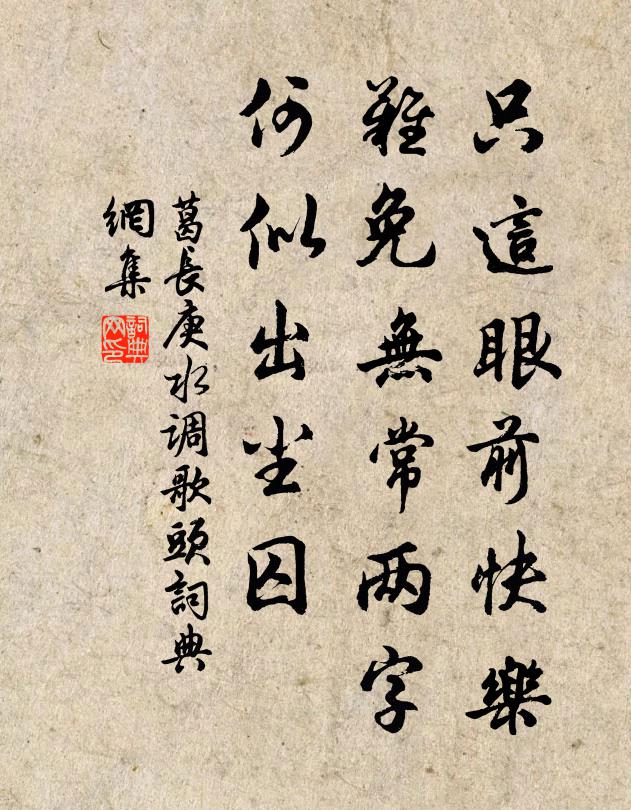 只這眼前快樂
難免無常两字
何似出尘囚
葛長庚水调歌頭詞典
網集
詞典
网印